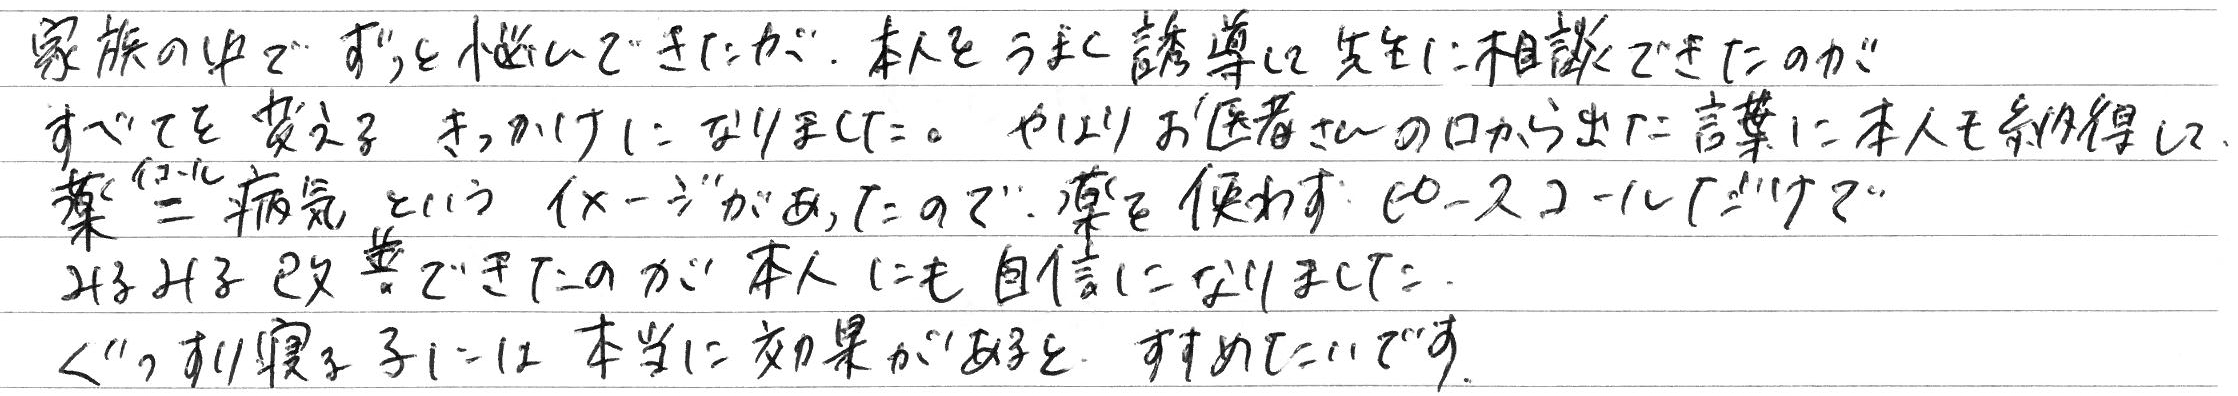 家族の中で ずっと悩んできたが、本人をうまく誘導して先生に相談できたのが
すべてを変える きっかけになりました。 やはりお医者さんの口から出た言葉に本人も納得して、
薬＝(イコール)病気 という イメージがあったので、薬を使わず ピースコールだけで
みるみる改善できたのが 本人にも自信になりました。
ぐっすり寝る子には本当に効果があると、すすめたいです。